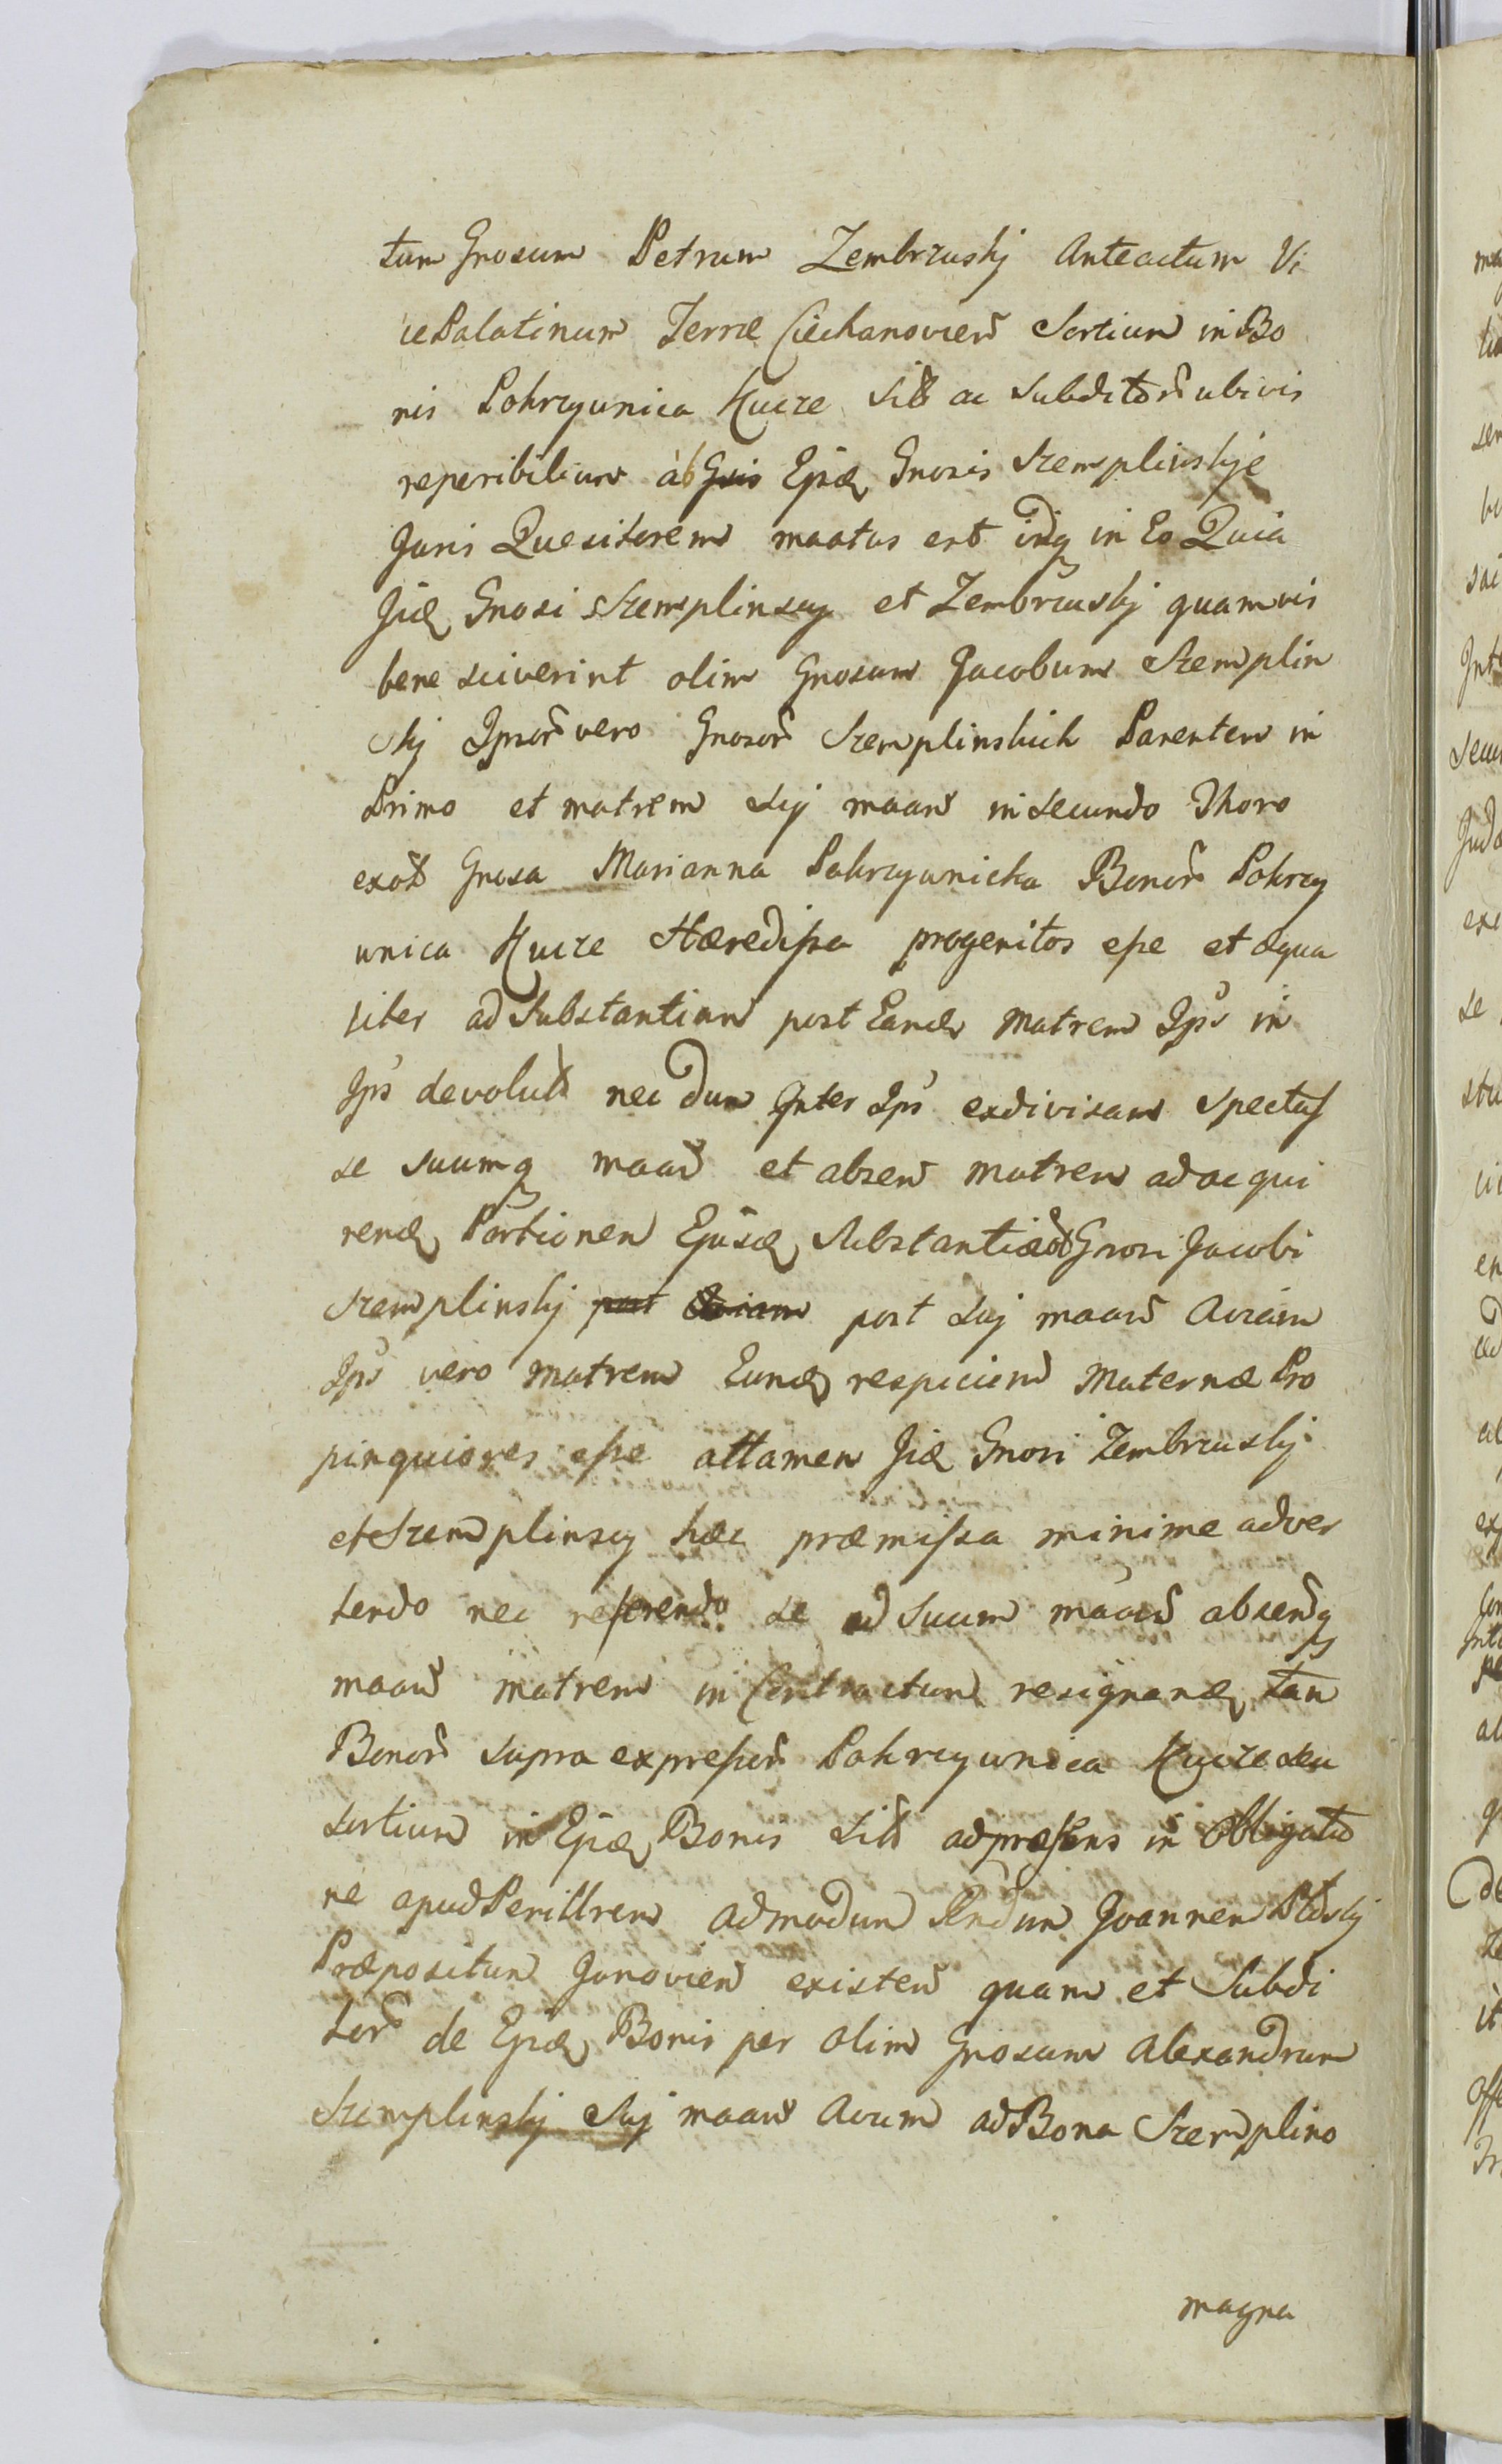 tum Gnosum Petrum Zembrzuskj Anteactum Vi
cePalatinum Terræ Ciechanovien̄ Sortium in Bo
nis Pokrzywnica Kuize Sit̄ ac Subditor̄ ubivis
reperibilium ab Ejsdē Gnosis Szemplinskje
Juris Quesitorem maatus est idq̨ in Eo Quia
Jidē Gnosi Szemplinscy et Zembrzuskj quamvis
bene sciverint olim Gnosum Jacobum Szemplin
skj Ipsor̄ vero Gnosor̄ Szemplinskich Parentem in
Primo et matrem Suj maan̄ in Secundo Thoro
exot̄ Gnosa Marianna Pokrzywnicka Bonor̄ Pokrzy
wnica Kuize Hæredissa progenitos esse et æqua
liter ad Substantiam post Eandē Matrem Ips̄ in
Ips̄ devolut̄ nec dum Inter Ips̄ exdivisam Spectas̄
se suumq̨ maan̄ et absen̄ matrem ad acqui
rendē Portionem Ejusdē Substantiæ Gnosi Jacobi
Szemplinskj post post Suj maan̄ Aviam
Ips̄ vero Matrem Eundē respicien̄ Maternæ Pro
pinquiores esse attamen Jidē Gnosi Zembrzuskj
et Szemplinscy hæc præmissa minime adver
tendo nec referendo se ad Suum maan̄ absenq̨
maan̄ matrem in Contractum resignandē tam
Bonor̄ supra expressor̄ Pokrzywnica Kuize seu
sortium in Ejsdē Bonis Sit̄ ad præsens in Obligatio
ne apud Perillrem admodum Rndum Joannem
Præpositum Janovien̄ existen̄ quam et Subdi
tor̄ de Ejsdē Bonis per olim Gnosum Alexandrum
Szemplinskj Suj maan̄ Avum ad Bona Szemplino
magna